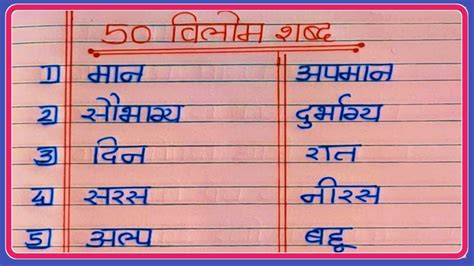 50 विलोम शब्द
1) मान अपमान
2) सौभाग्य दुर्भाग्य
3) दिन रात
4) सरस नीरस
5) अल्प बहू